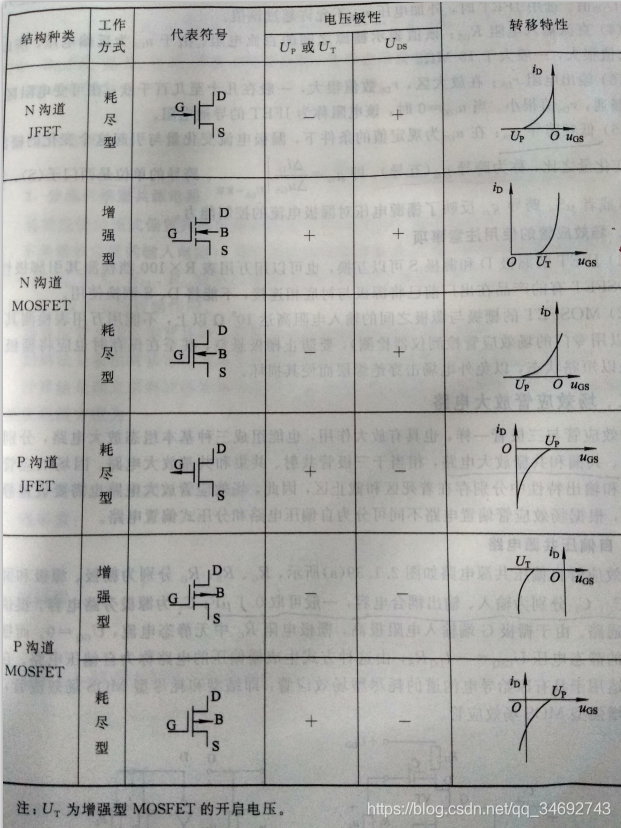 结构种类 工作方式 代表符号 电压极性 转移特性
U_P 或 U_T U_DS
N 沟道 JFET 耗尽型 G D S − + i_D U_P O u_GS
N 沟道 MOSFET 增强型 G D B S + + i_D O U_T u_GS
耗尽型 G D B S − + i_D U_P O u_GS
P 沟道 JFET 耗尽型 G D S + − i_D O U_P u_GS
P 沟道 MOSFET 增强型 G D B S − − U_T i_D O u_GS
耗尽型 G D B S + − i_D O U_P u_GS
注：U_T 为增强型 MOSFET 的开启电压。
https://blog.csdn.net/qq_34692743